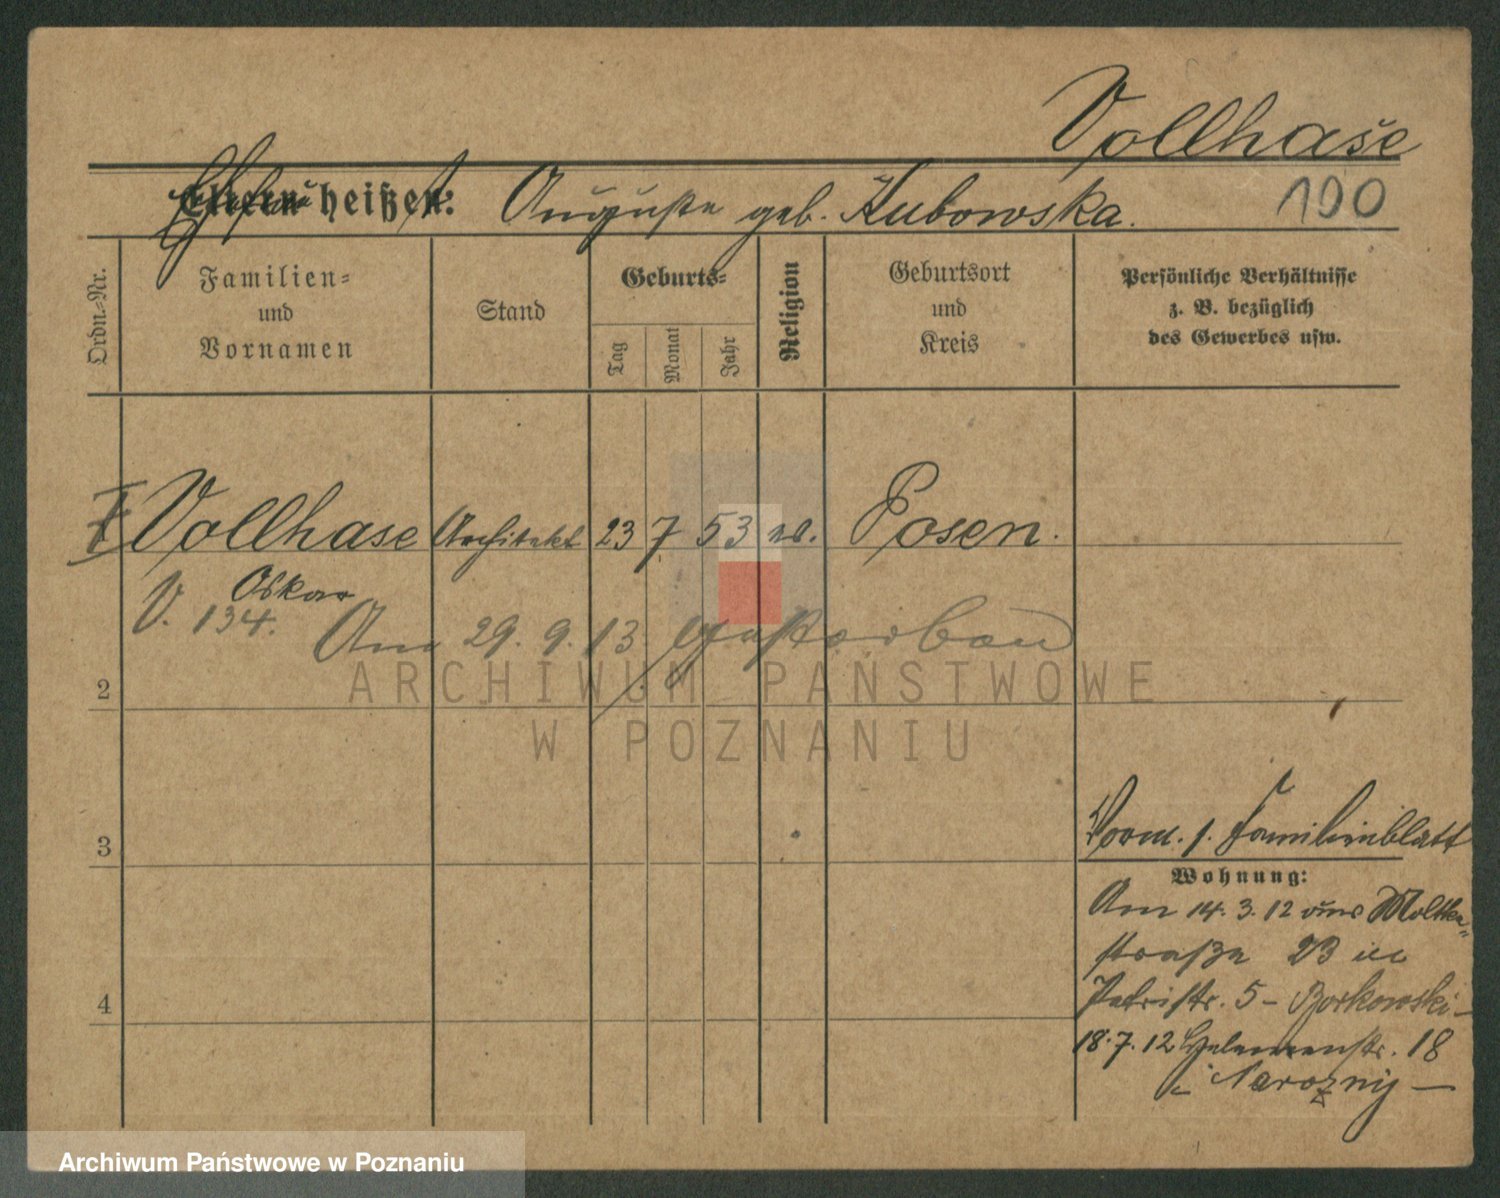 Vollhase
Eltern heißen: Auguste geb. Kubowska.
190
Ordn.=Nr.
Familien=
und
Vornamen
Stand
Geburts=
Tag
Monat
Jahr
Religion
Geburtsort
und
Kreis
Persönliche Verhältnisse
z. B. bezüglich
des Gewerbes usw.
Vollhase Architekt 23 7 53 Posen.
Oskar
V. 134.
Am 29. 9. 13 gestorben
2
ARCHIWUM PAŃSTWOWE
W POZNANIU
3
Verm. 1. Familienblatt
Wohnung:
Am 14. 3. 12 Moltke=
straße 23
Petristr. 5 - Borkowski -
4
18. 7. 12 18
Narozny -
Archiwum Państwowe w Poznaniu